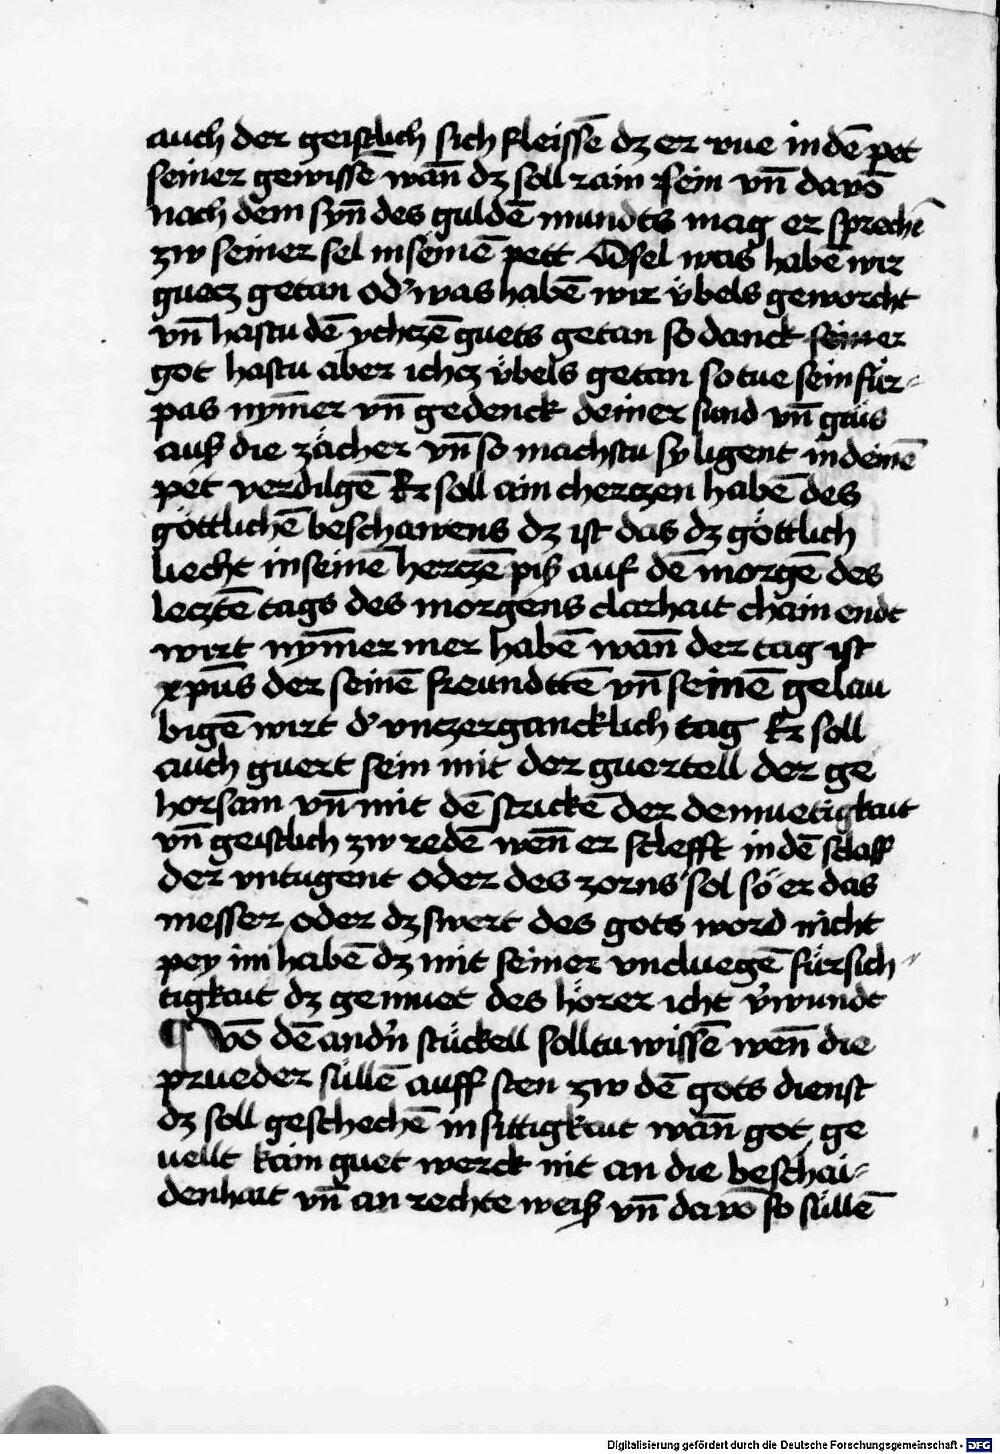 auch der geistlich sich fleissē dz er rue in dē pet
seiner gewissē wañ dz soll rain sein vñ davō
nach dem syñ des guldē mundts mag er sprechē
zw seiner sel in seinē pett O sel was habē wir
guecz getan od' was habē wir v̈bels geworcht
vñ hastu dē ychczē guets getan so danck seiner
got hastu aber ichcz v̈bels getan so tue sein für-
pas nym̄er vñ gedenck deiner sund vñ geüs
auß die zächer vñ so machstu sy ligent in deinē
pet verdilgē Er soll ain cherczen habē des
göttlichē beschawens dz ist das dz göttlich
liecht in seinē herczē piß auf dē morgē des
lecztē tags des morgens clarhait chain endt
wirt nym̄er mer habē wañ der tag ist
xp̄us der seinē freundttē vñ seinē gelau
bigē wirt d' vnczergancklich tag Er soll
auch guert sein mit der guertell der ge
horsam vñ mit dē strickē der demuetigkait
vñ geistlich zw redē weñ er sclefft in dē sclaff
der vntugent oder des zorns sol so er das
messer oder dz swert des gots word nicht
pey im habē dz mit seiner vncluegē fürsich-
tigkait dz gemuet des hörer icht v'wundt
¶ Vō dē and'n stückell solltu wissē weñ die
prueder süllē auff sten zw dē gots dienst
dz soll geschechē in sittigkait wañ got ge
uellt kain guet werck nit an die beschai-
denhait vñ an rechte weiß vñ davō so süllē
Digitalisierung gefördert durch die Deutsche Forschungsgemeinschaft - DFG